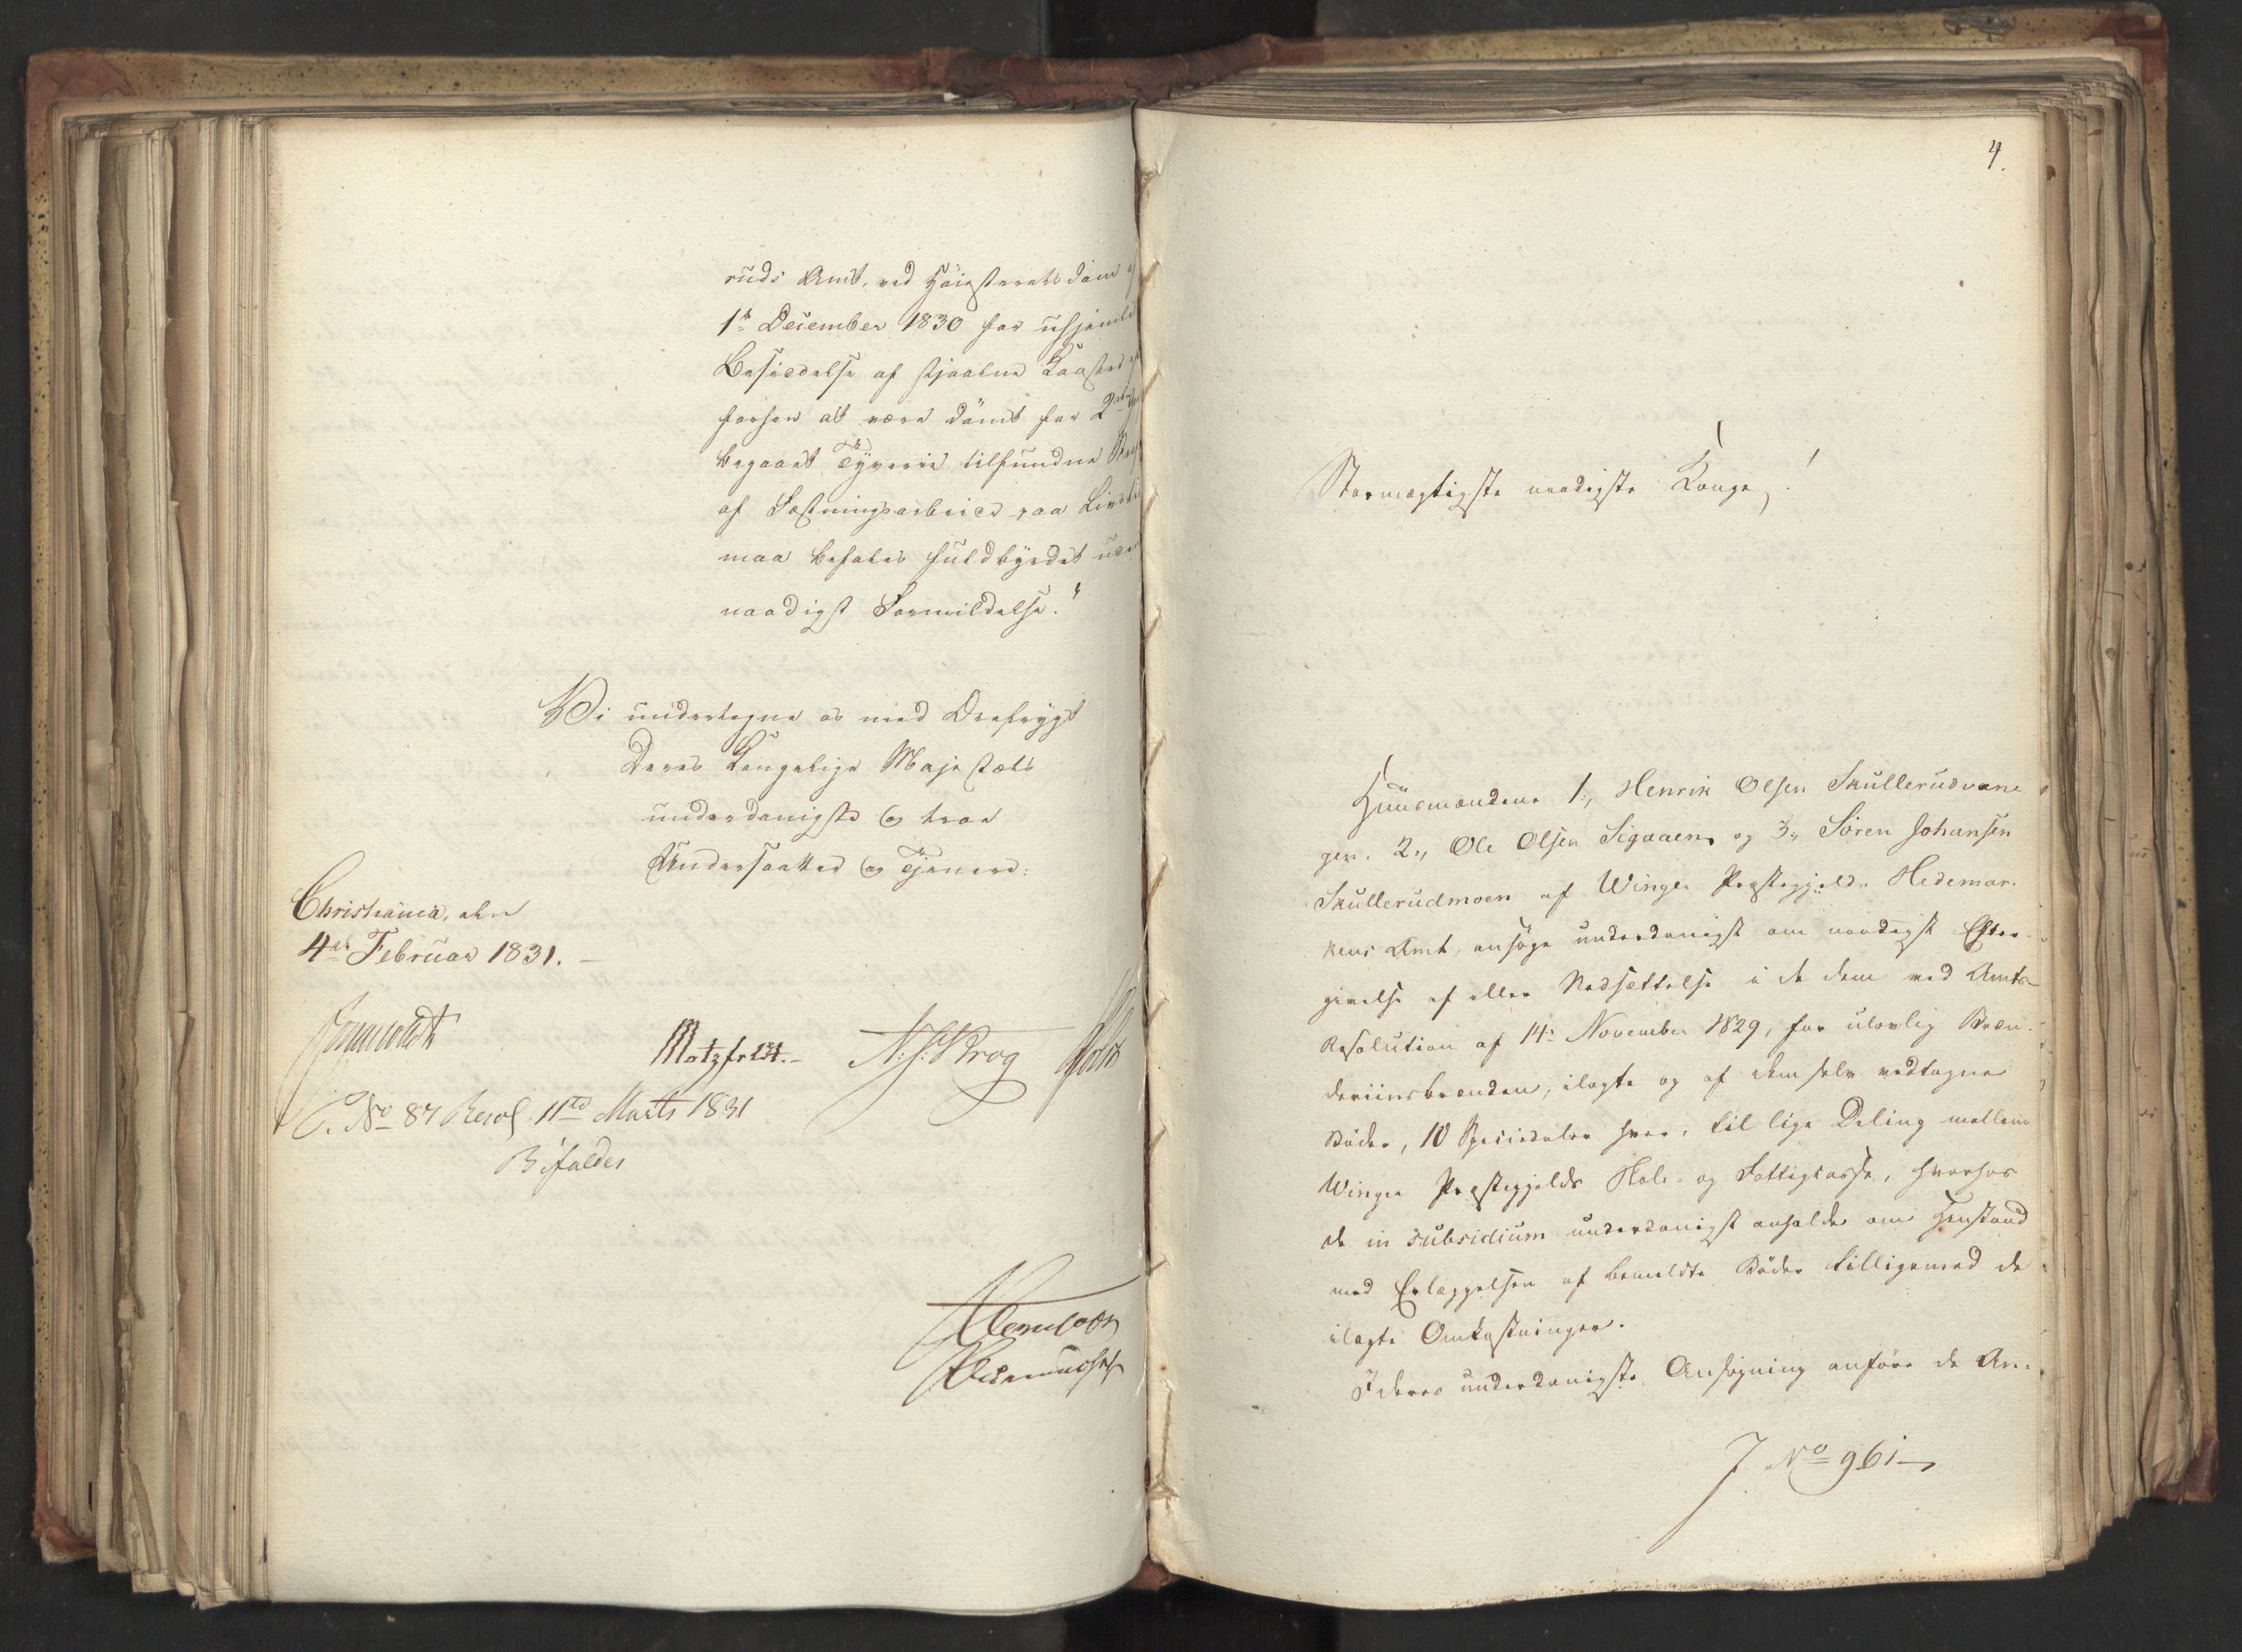 ruds Amt, ved Höiesteretsdom
1ste December 1830 for uhjemlet
Besiddelse af stjaalne Kaaster
forhen at være dömt for 2den
begaaet Tyverie tilfundne Straf
af Fæstningsarbeide paa Livstid
maa befales fuldbyrdet uden
naadigst Formildelse."
Vi undertegne os med Ærefrygt
Deres Kongelige Majestæts
underdanigste og troe
Undersaatter og Tjenere:
Christiania, den
4de Februar 1831.
Motzfeldt. N: J: Krog
No 87 Resol. 11te Marts 1831
Bifaldes
4.
Stormægtigste naadigste Konge!
Huusmændene 1., Henrik Olsen Skullerudvan-
gen. 2., Ole Olsen Sigaaen, og 3., Sören Johansen
Skullerudmoen af Winger Præstegjeld. Hedemar-
kens Amt, ansöge underdanigst om naadigst Efter-
givelse af eller Nedsættelse i de dem ved Amts-
Resolution af 14. November 1829, for ulovlig Bræn-
deviinsbrænden, ilagte og af dem selv vedtagne
Böder, 10 Speciedaler hver, til lige Deling mellem
Winger Præstegjelds Skole- og Fattigcasse, hvorhos
de in subsidium underdanigst anholde om Henstand
med Erlæggelsen af bemeldte Böder tilligemed de
ilagte Omkostninger.
I deres underdanigste Ansögning anföre de An-
J No 961